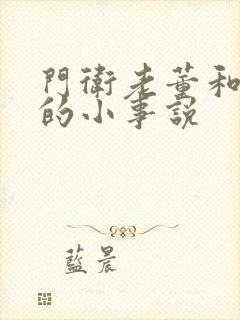 門衛老董和
的小事説
藍晨